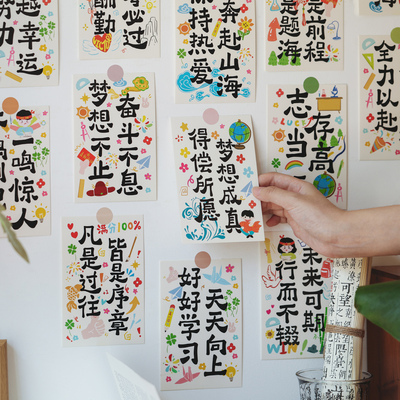 努力
越幸运
酬勤
必过
持热爱
奔赴山海
是题海
是前程
全力以赴
一鸣惊人
梦想不止
奋斗不息
得偿所愿
梦想成真
志当
存高
凡是过往
满分100%
皆是序章
好好学习
天天向上
行而不辍
未来可期
WIN